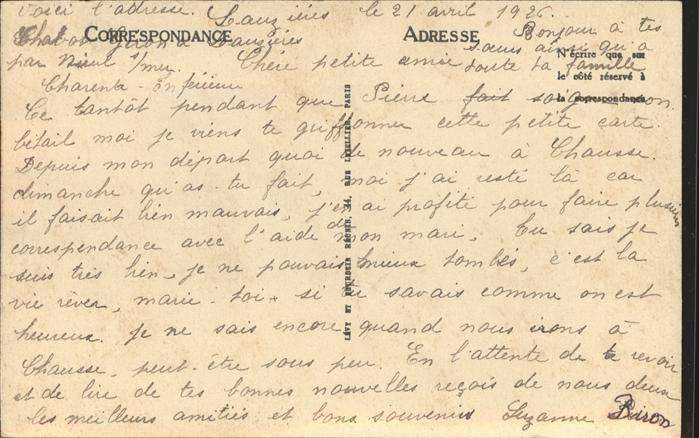 Voici l'adresse. Lauzières le 21 avril 1926.
CORRESPONDANCE
ADRESSE
Lauzières
par Nieul s/mer
Charente inférieure
Bonjour à tes
sœurs ainsi qu'à
toute ta famille
N'écrire que sur
le côté réservé à
la correspondance
Chère petite amie
Ce tantôt pendant que Pierre fait son
bétail moi je viens te griffonner cette petite carte.
Depuis mon départ quoi de nouveau à Chausse.
dimanche qu'as-tu fait, moi j'ai resté là car
il faisait bien mauvais, j'en ai profité pour faire plusieurs
correspondance avec l'aide de mon mari. Tu sais je
suis très bien, je ne pouvais mieux tombés, c'est la
vie rever, marie-toi, si tu savais comme on est
heureux. Je ne sais encore quand nous irons à
Chausse, peut-être sous peu. En l'attente de te revoir
et de lire de tes bonnes nouvelles reçois de nous deux
les meilleurs amitiés et bons souvenirs Suzanne
LÉVY ET NEURDEIN RÉUNIS, 44, RUE LETELLIER, PARIS